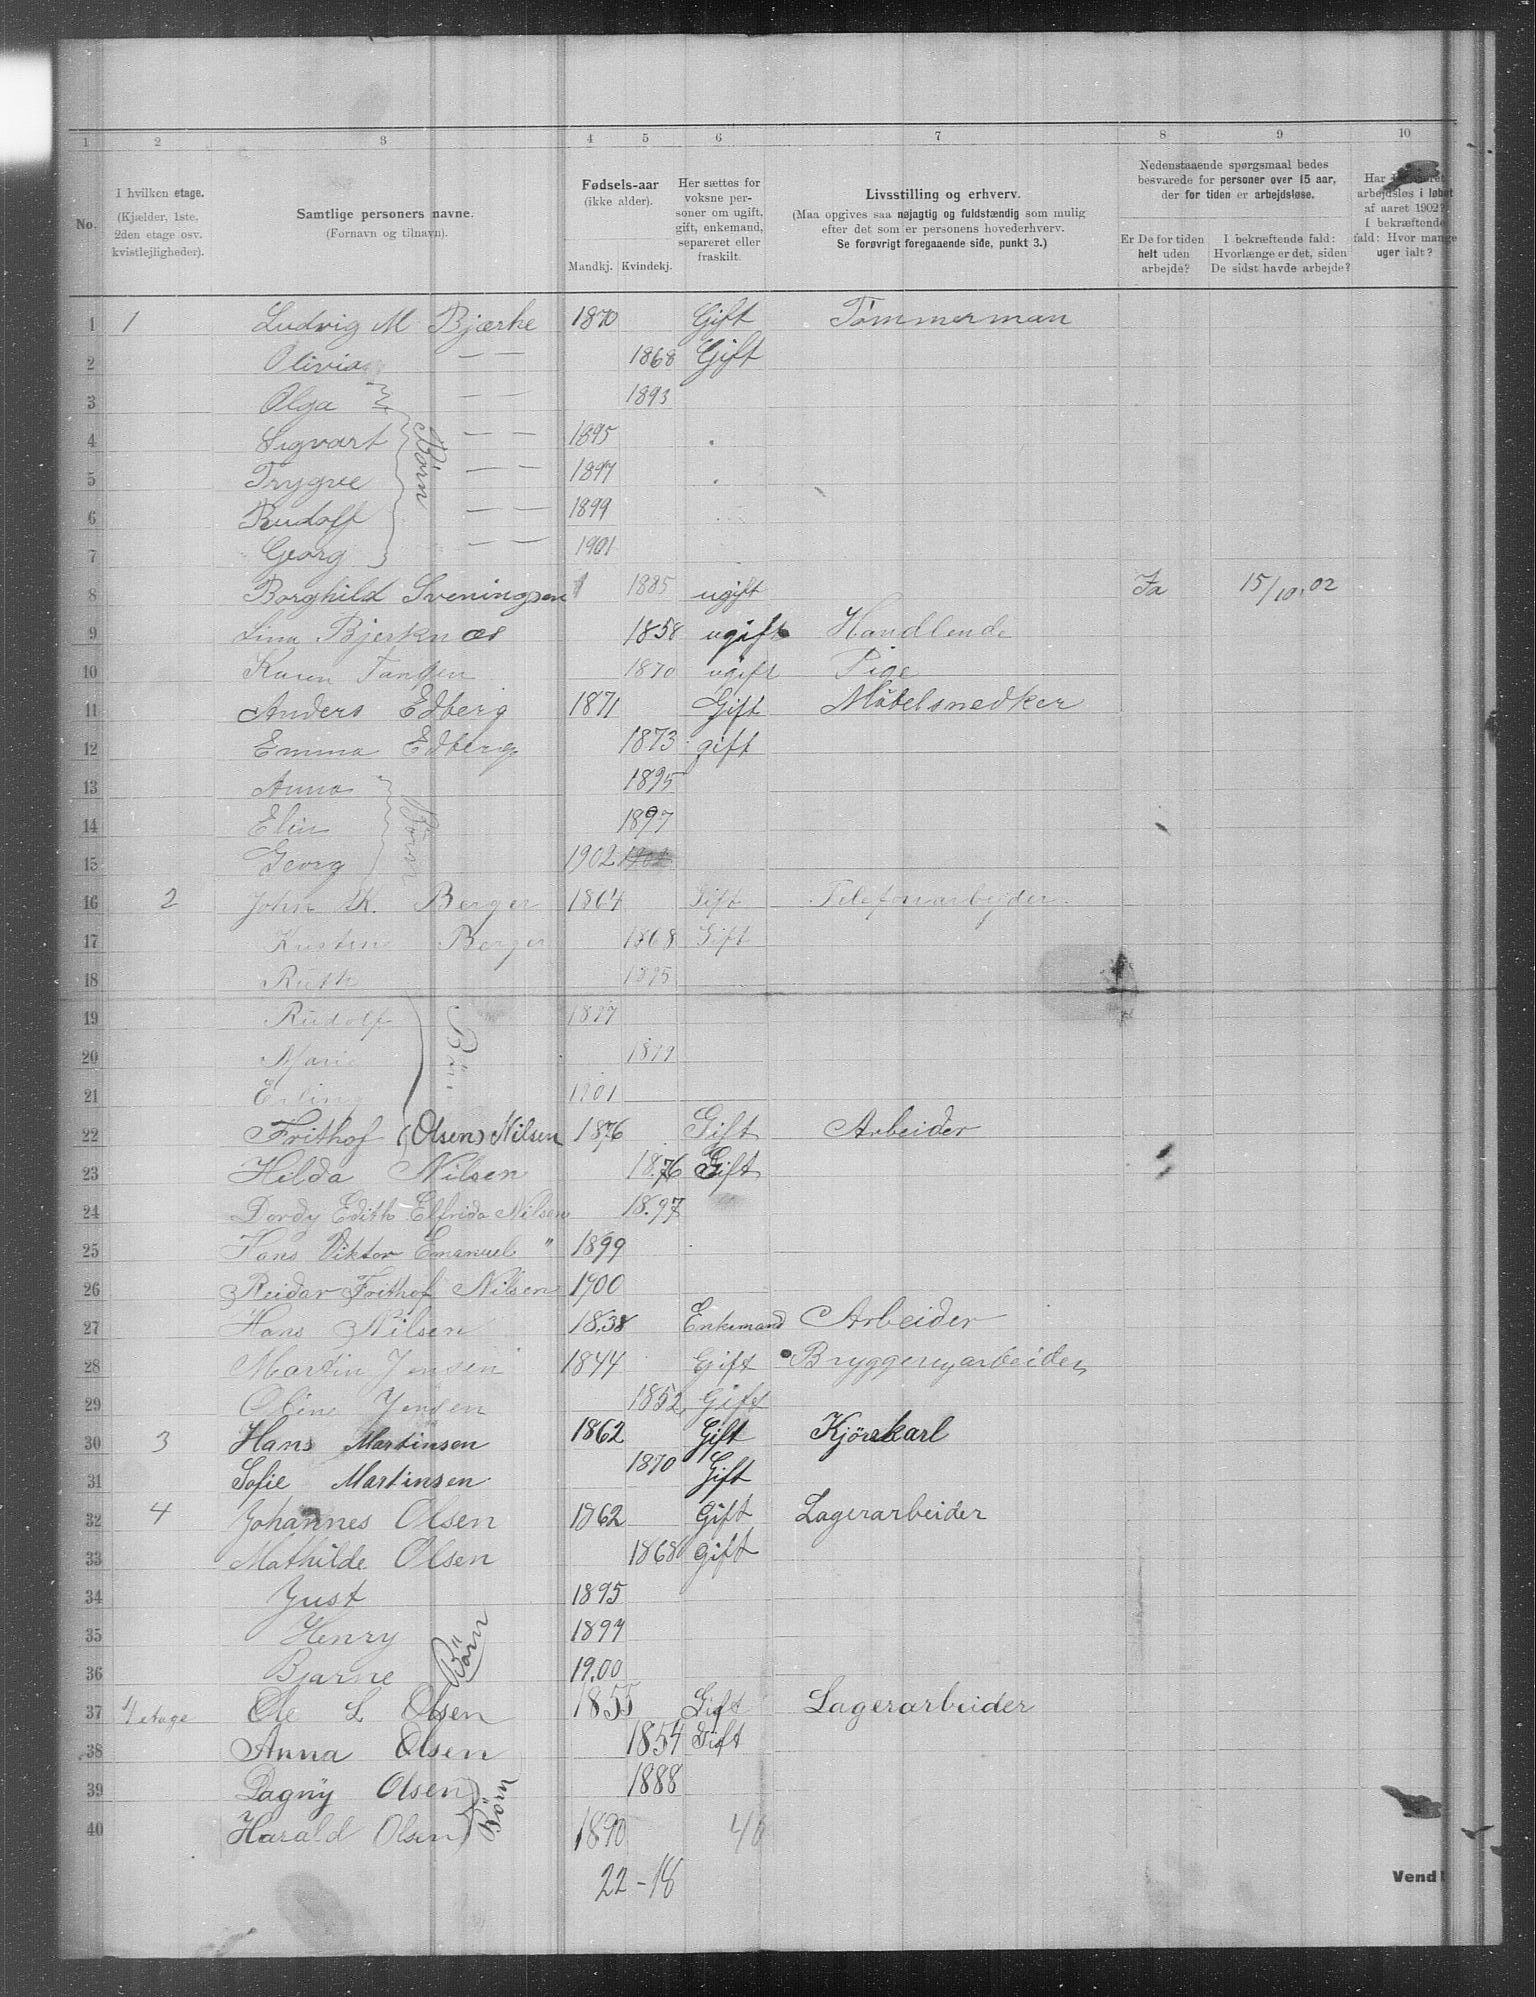 1 2 3 4 5 6 7 8 9 10
No.
I hvilken etage.
(Kjælder, 1ste,
2den etage osv.
kvistlejligheder).
Samtlige personers navne.
(Fornavn og tilnavn).
Fødsels-aar
(ikke alder).
Mandkj. Kvindekj.
Her sættes for
voksne per-
soner om ugift,
gift, enkemand,
separeret eller
fraskilt.
Livsstilling og erhverv.
(Maa opgives saa nøjagtig og fuldstændig som mulig
efter det som er personens hovederhverv.
Se forøvrigt foregaaende side, punkt 3.)
Nedenstaaende spørgsmaal bedes
besvarede for personer over 15 aar,
der for tiden er arbejdsløse.
Er De for tiden
helt uden
arbejde?
I bekræftende fald:
Hvorlænge er det, siden
De sidst havde arbejde?
Har
arbejdsløs i løbet
af aaret 1902?
I bekræftende
fald: Hvor mange
uger ialt?
1 1 Ludvig M Bjærke 1870 Gift Tömmerman
2 Olivia — — 1868 Gift
3 Olga — — 1893
4 Sigvart — — 1895
5 Trygve — — 1897
6 Rudolf — — 1899
7 Georg — — 1901
Børn
8 Borghild Sveningsen 1885 ugift Ja 15/10.02
9 Lina Bjerknæs 1858 ugift Handlende
10 Karen Tangen 1870 ugift Pige
11 Anders Edberg 1871 Gift Möbelsnedker
12 Emma Edberg 1873 gift
13 Anna 1895
14 Elin 1897
15 Georg 1902
Børn
16 2 John K. Berger 1864 Gift Telefonarbejder
17 Kristine Berger 1868 Gift
18 Ruth 1895
19 Rudolf 1897
20 Marie 1899
21 Erling 1901
Børn
22 Frithof (Olsen) Nilsen 1876 Gift Arbeider
23 Hilda Nilsen 1876 Gift
24 Dordy Edith Elfrida Nilsen 1897
25 Hans Viktor Emanuel " 1899
26 Reidar Frithof Nilsen 1900
27 Hans Nilsen 1838 Enkemand Arbeider
28 Martin Jensen 1844 Gift Bryggeriarbeider
29 Oline Jensen 1852 Gift
30 3 Hans Martinsen 1862 Gift Kjörekarl
31 Sofie Martinsen 1870 Gift
32 4 Johannes Olsen 1862 Gift Lagerarbeider
33 Mathilde Olsen 1868 Gift
34 Just 1895
35 Henry 1897
36 Bjarne 1900
Börn
37 4 etage Ole L Olsen 1855 Gift Lagerarbeider
38 Anna Olsen 1854 Gift
39 Dagny Olsen 1888
40 Harald Olsen 1890 40
Börn
22-18
Vend!